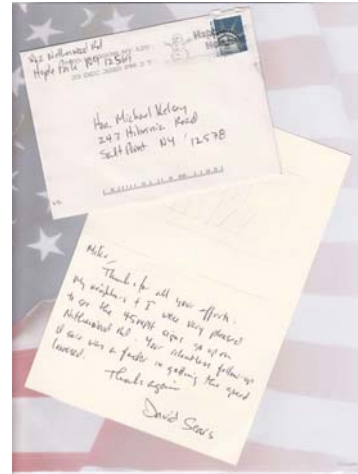 Netherwood Rd
Hyde Park NY 12538
20 DEC 2005 PM 2 T
Happy
Hon. Michael Kelsey
247 Hibernia Road
Salt Point NY 12578
Mike,
Thanks for all your efforts.
My neighbors & I were very pleased
to see the 45 mph signs go up on
Netherwood Rd. Your relentless follow up
I'm sure was a factor in getting the speed
lowered.
Thanks again
David Sears